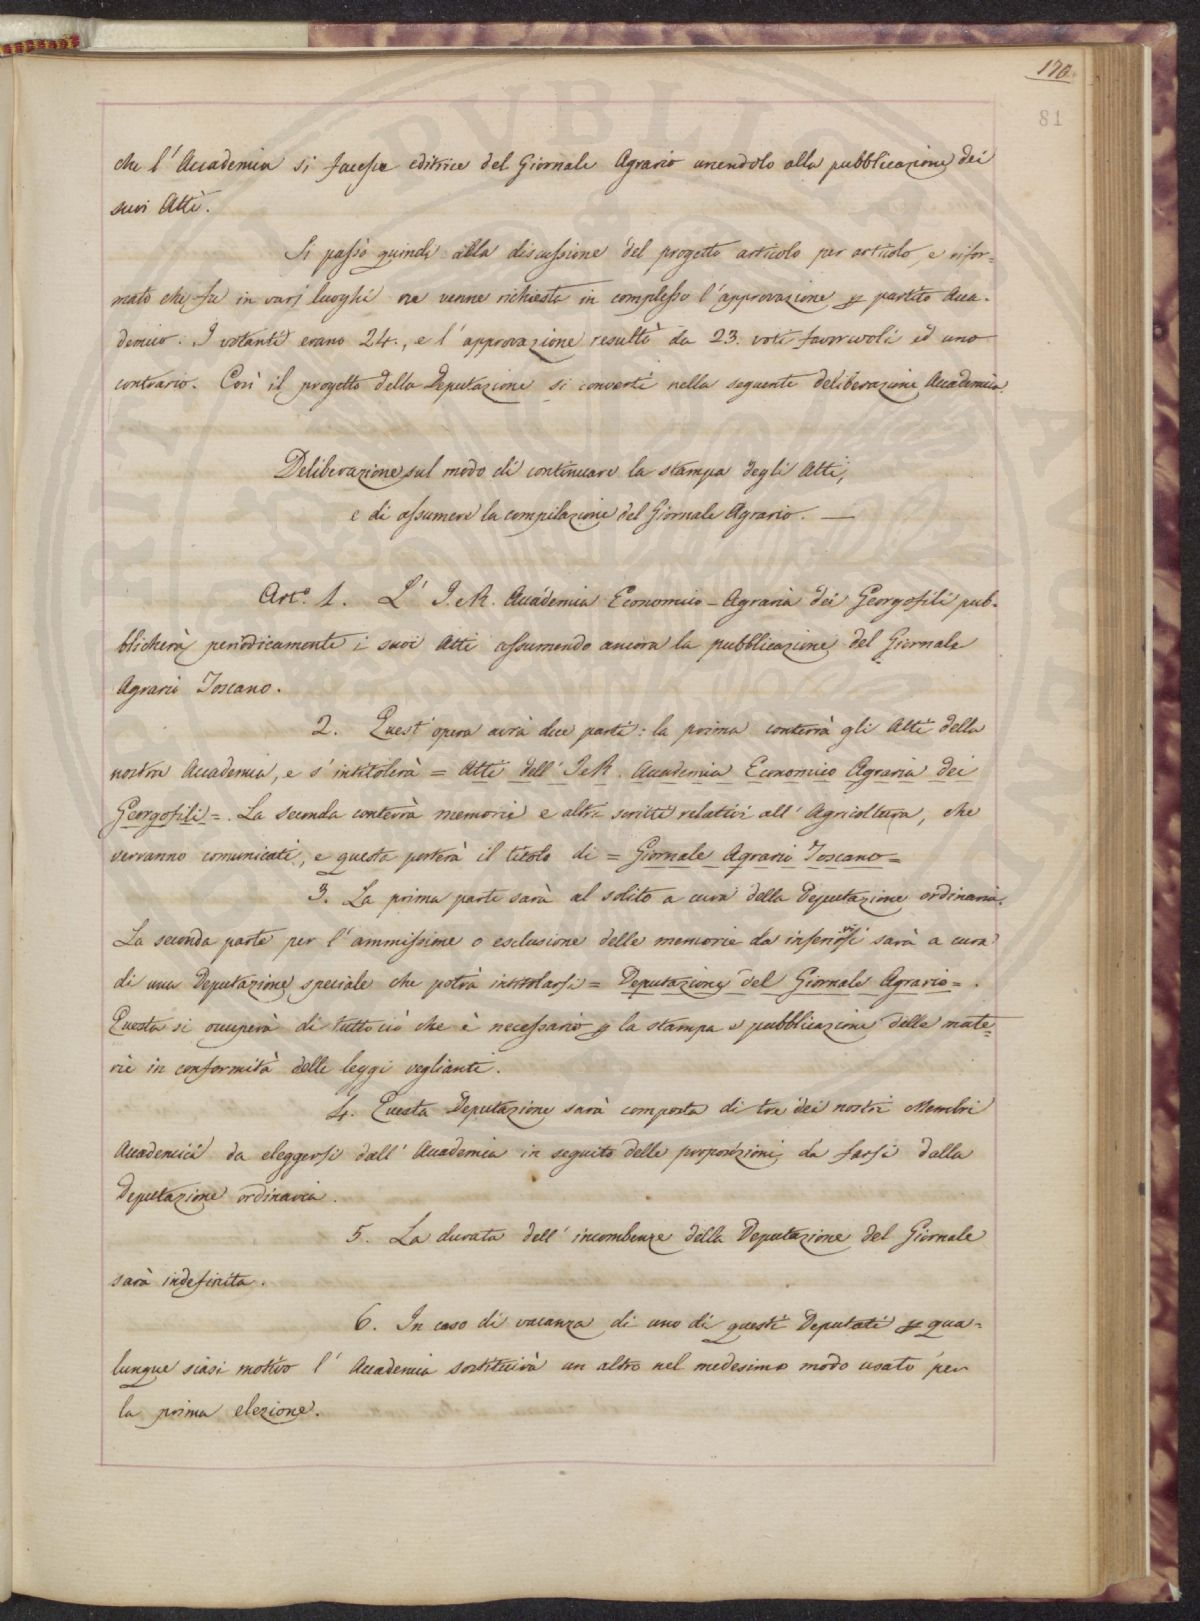 170.
81
che l'Accademia si facesse editrice del Giornale Agrario unendolo alla pubblicazione dei
suoi Atti.
Si passò quindi alla discussione del progetto articolo per articolo, e rifor=
mato che fu in varj luoghi ne venne richiesta in complesso l'approvazione p partito Acca-
demico. I votanti erano 24., e l'approvazione resultò da 23. voti favorevoli ed uno
contrario. Così il progetto della Deputazione si convertì nella seguente deliberazione Accademica.
Deliberazione sul modo di continuare la stampa degli Atti,
e di assumere la compilazione del Giornale Agrario. —
Art.º 1. L' I. e R. Accademia Economico-Agraria dei Georgofili pub-
blicherà periodicamente i suoi Atti assumendo ancora la pubblicazione del Giornale
Agrario Toscano.
2. Quest'opera avrà due parti: la prima conterrà gli Atti della
nostra Accademia, e s'intitolerà = Atti dell' I. e R. Accademia Economico Agraria dei
Georgofili =. La seconda conterrà memorie e altri scritti relativi all'Agricoltura, che
verranno comunicati, e questa porterà il titolo di = Giornale Agrario Toscano =
3. La prima parte sarà al solito a cura della Deputazione ordinaria.
La seconda parte per l'ammissione o esclusione delle memorie da inserirvisi sarà a cura
di una Deputazione speciale che potrà intitolarsi = Deputazione del Giornale Agrario = .
Questa si occuperà di tutto ciò che è necessario p la stampa e pubblicazione delle mate=
rie in conformità delle leggi veglianti.
4. Questa Deputazione sarà composta di tre dei nostri Membri
Accademici da eleggersi dall'Accademia in seguito delle proposizioni da farsi dalla
Deputazione ordinaria.
5. La durata dell'incombenze della Deputazione del Giornale
sarà indefinita.
6. In caso di vacanza di uno di questi Deputati p qua=
lunque siasi motivo l'Accademia sostituirà un altro nel medesimo modo usato per
la prima elezione.